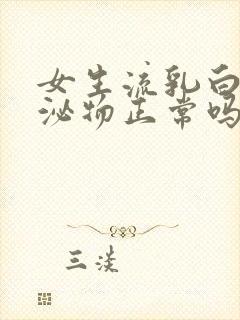 女生流乳白
泌物正常吗
三淡